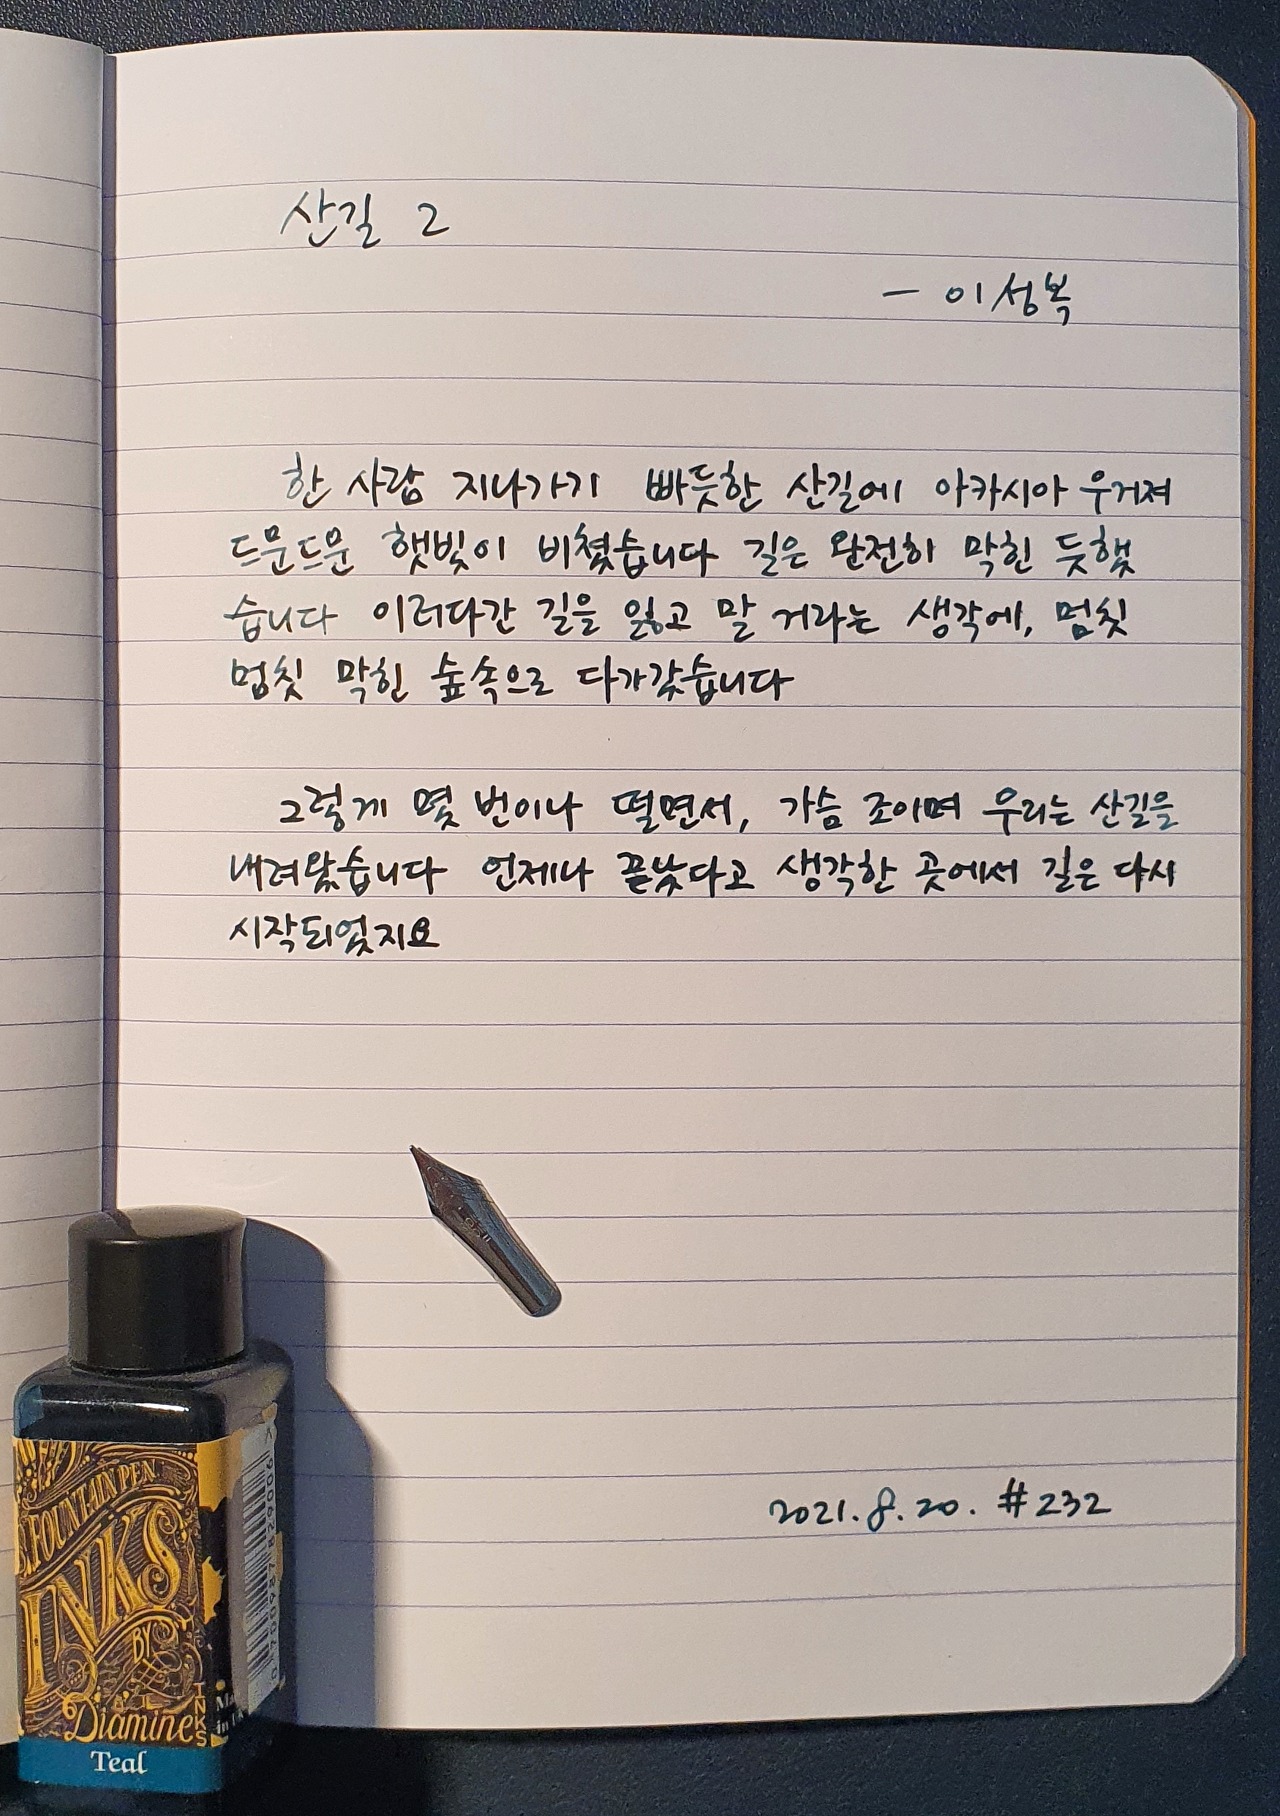 산길 2
- 이성복
한 사람 지나가기 빠듯한 산길에 아카시아 우거져
드문드문 햇빛이 비쳤습니다 길은 완전히 막힌 듯했
습니다 이러다간 길을 잃고 말 거라는 생각에, 멈칫
멈칫 막힌 숲속으로 다가갔습니다
그렇게 몇 번이나 떨면서, 가슴 조이며 우리는 산길을
내려왔습니다 언제나 끝났다고 생각한 곳에서 길은 다시
시작되었지요
2021.8.20. #232
FOUNTAIN PEN
INKS
BY
Diamine
INKS
Teal